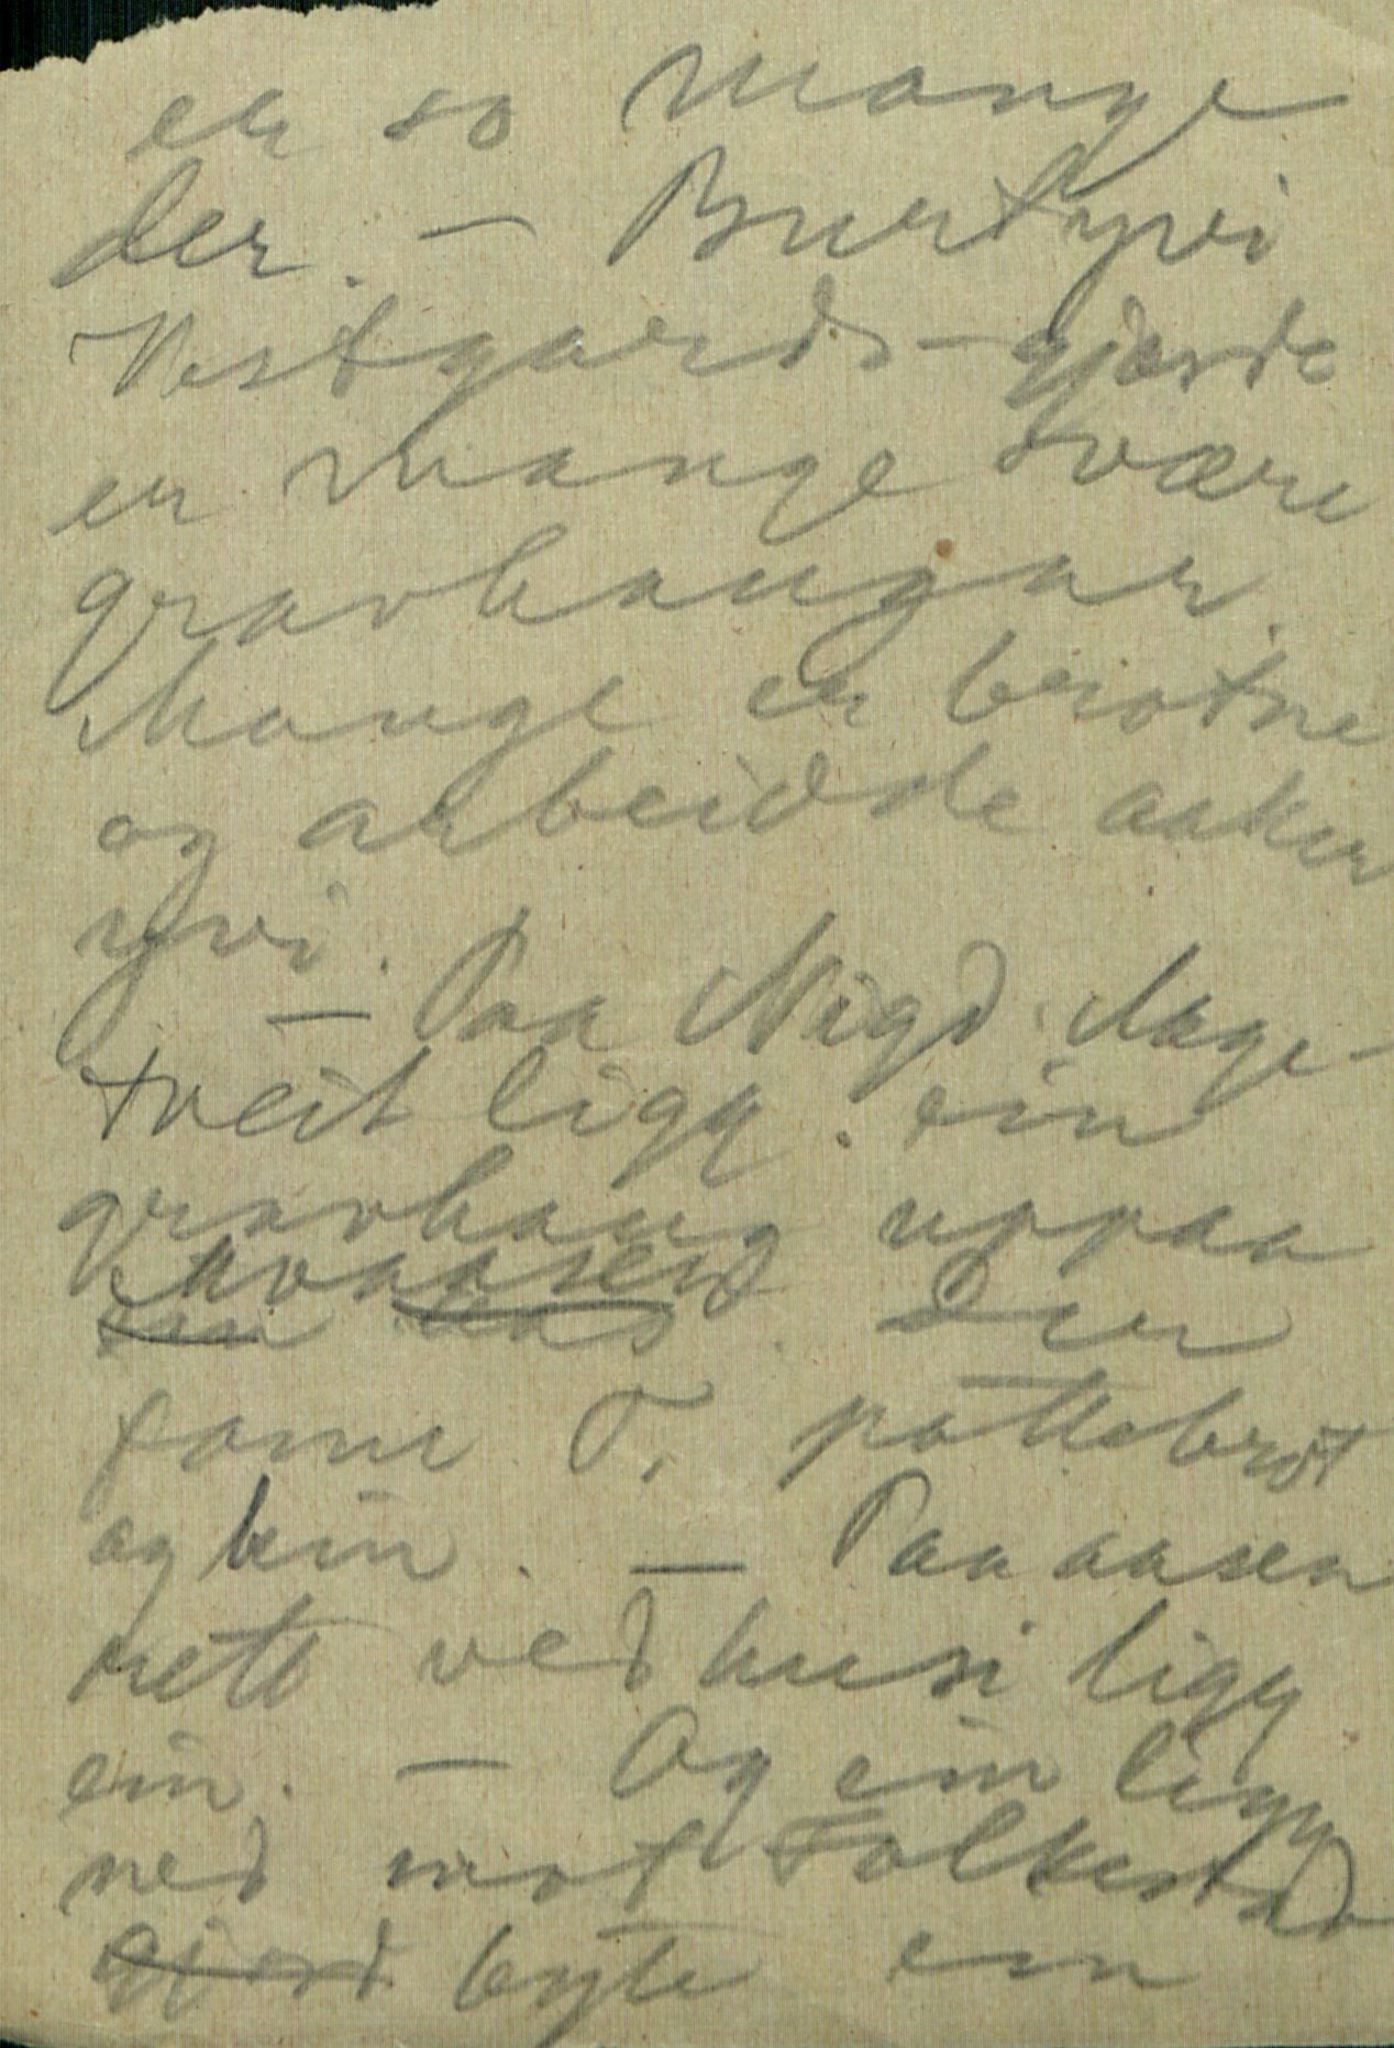 er so mange
der. – Burtyvi
Vestgards-gjerde
er mange svære
gravhaugar.
Mange er brotne
og arbeidde aaker
yvi.
– Paa Nigd. Hage-
tveit ligg. ein
gravhaug uppaa
kvaasen
Der
fann T. pottebrot
og bein. – Paa aasen
rett ved husi ligg
ein. – Og ein ligg
ned mot Folkestad
gjerd byte ein